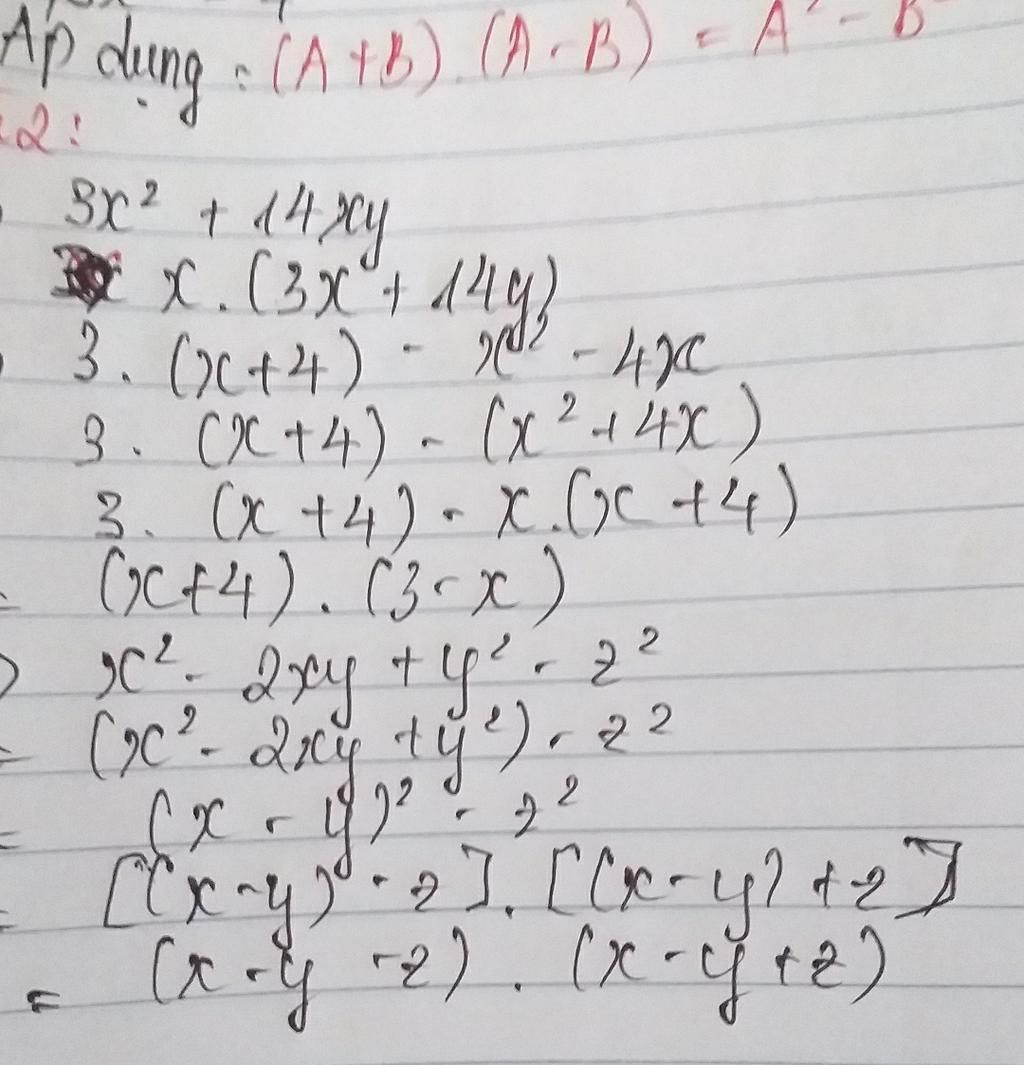 Áp dụng: (A+B).(A-B) = A² - B
2:
3x² + 14xy
x.(3x + 14y)
3.(x+4) - x² - 4x
3.(x+4) - (x² + 4x)
3.(x+4) - x.(x+4)
= (x+4).(3-x)
x² - 2xy + y² - z²
= (x² - 2xy + y²) - z²
= (x - y)² - z²
= [(x-y) - z].[(x-y) + z]
= (x-y-z).(x-y+z)